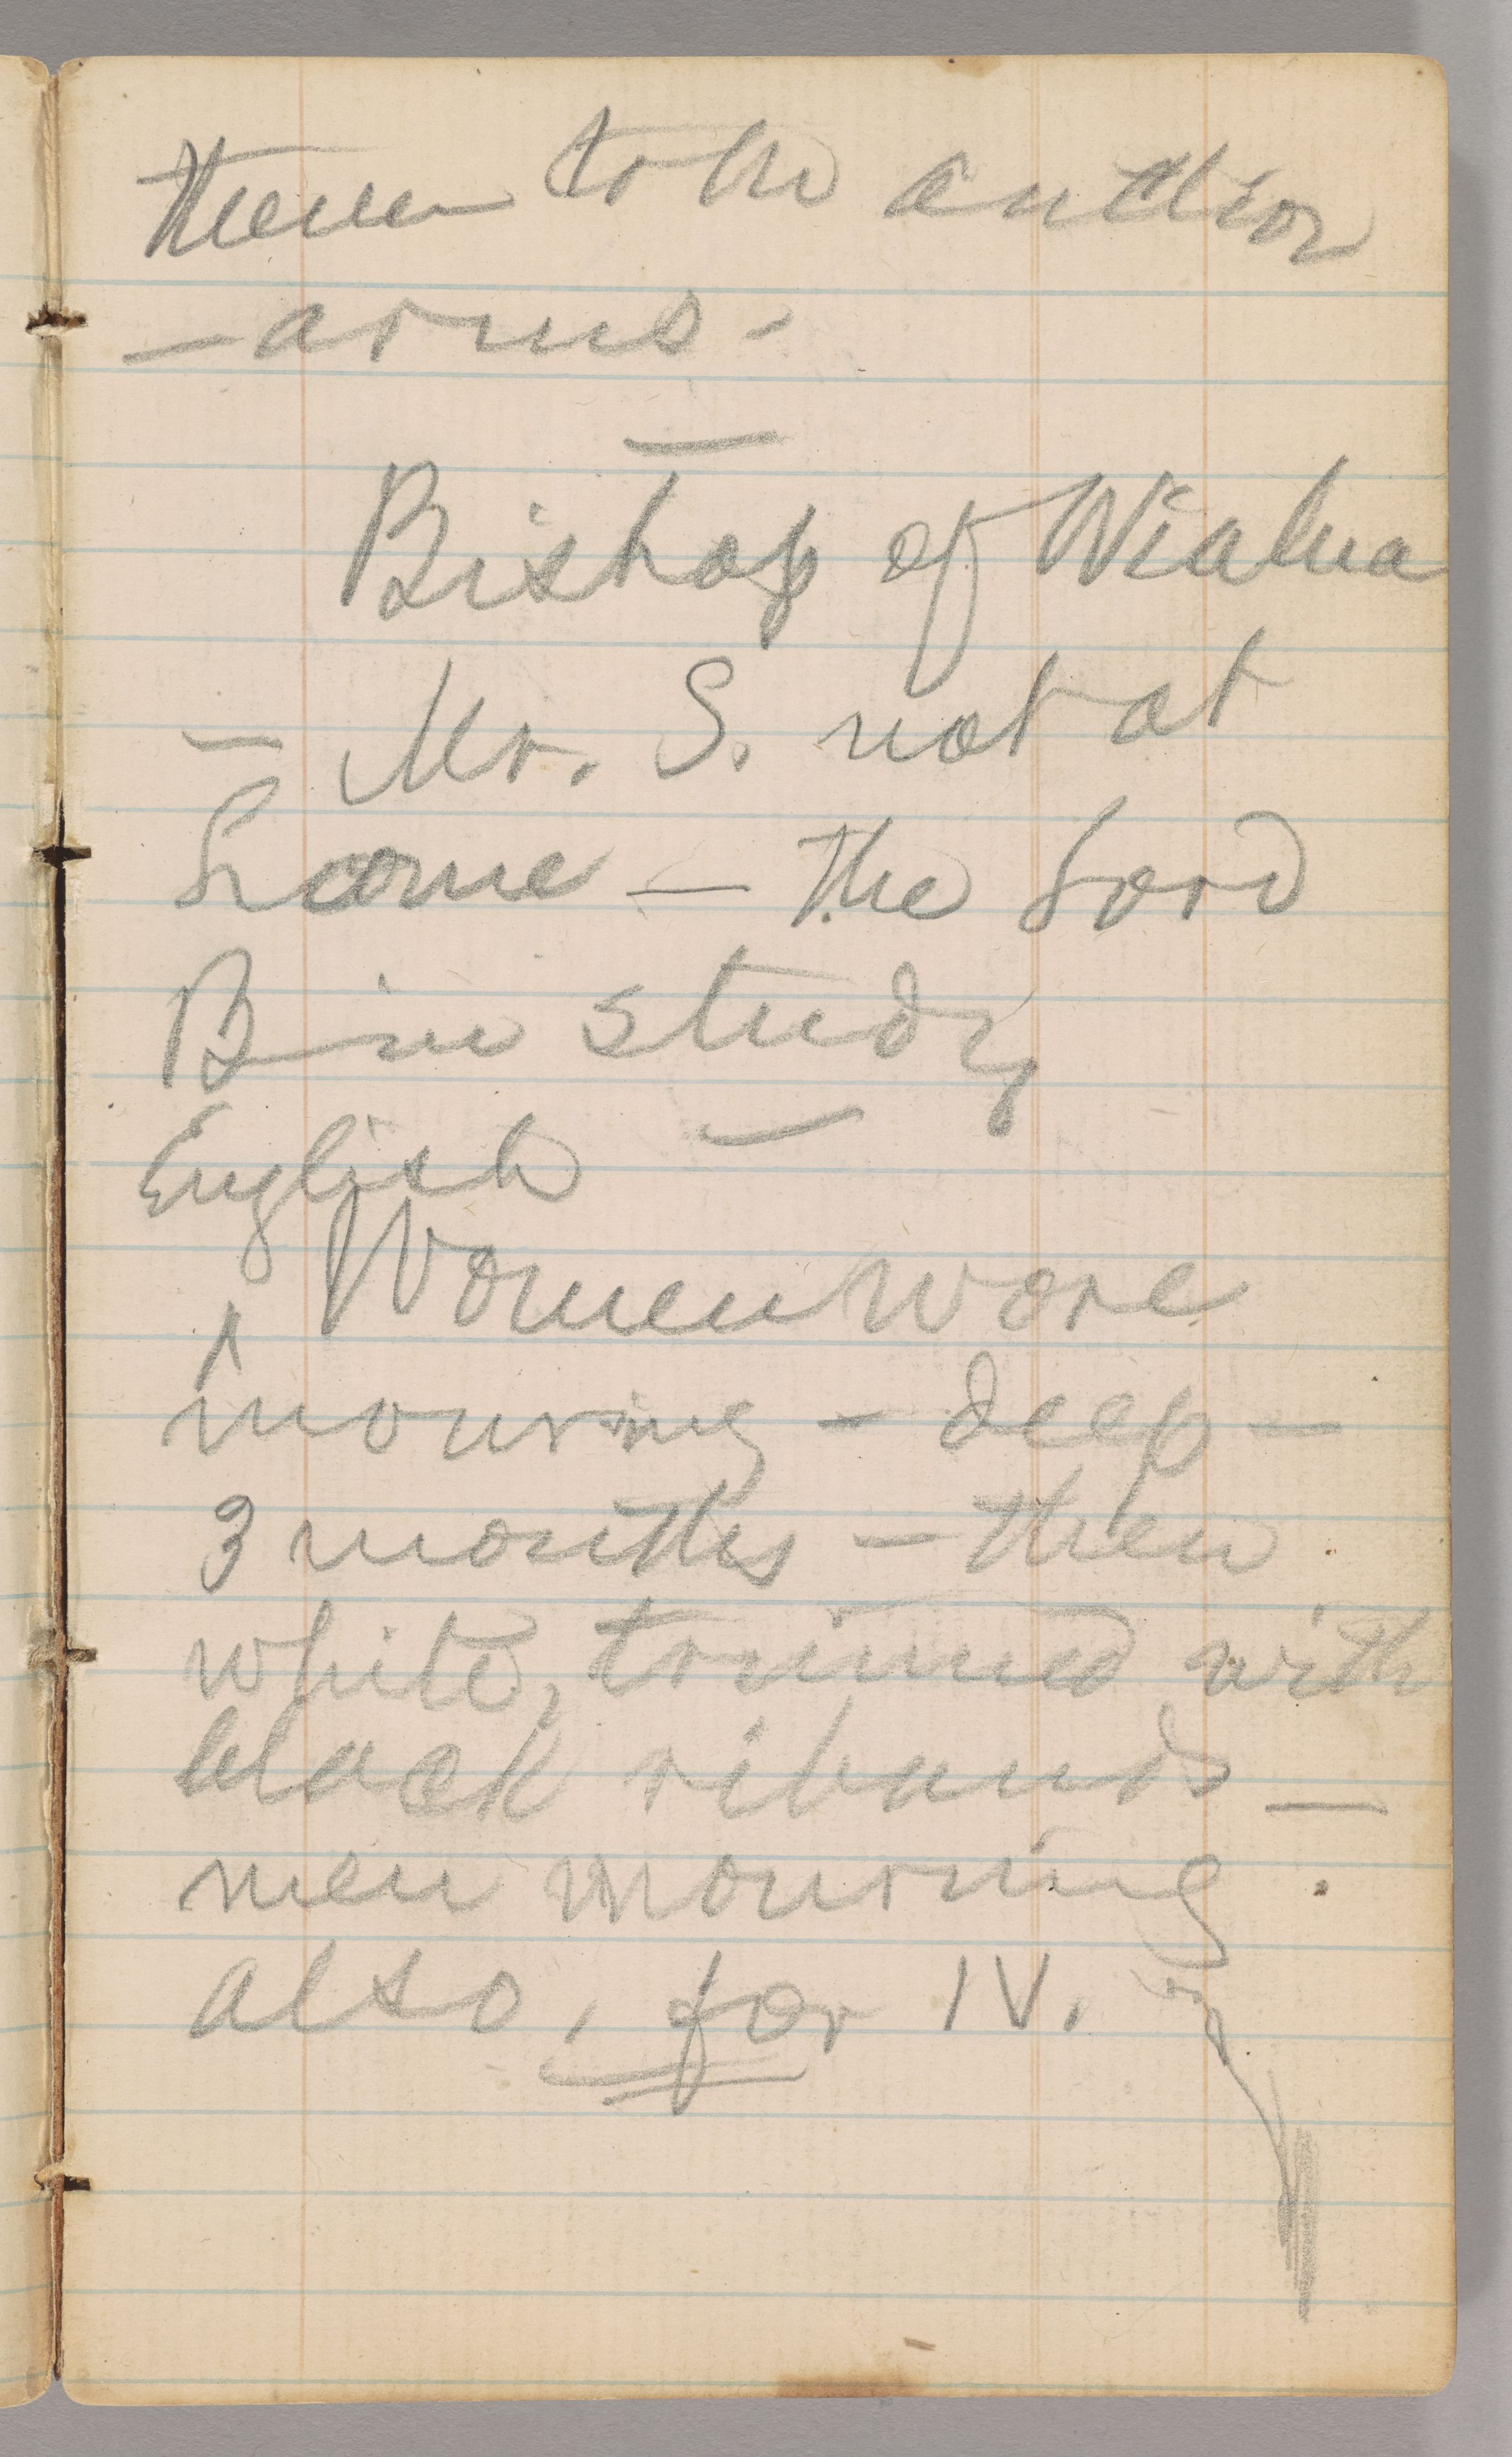 them to the author
— arms -
—
Bishop of Wialua
— Mr. S. not at
home — the Lord
B in study
English —
Women wore
^
mouring — deep —
3 months — then
white, trimed with
black ribands —
men mourning
also, for IV.